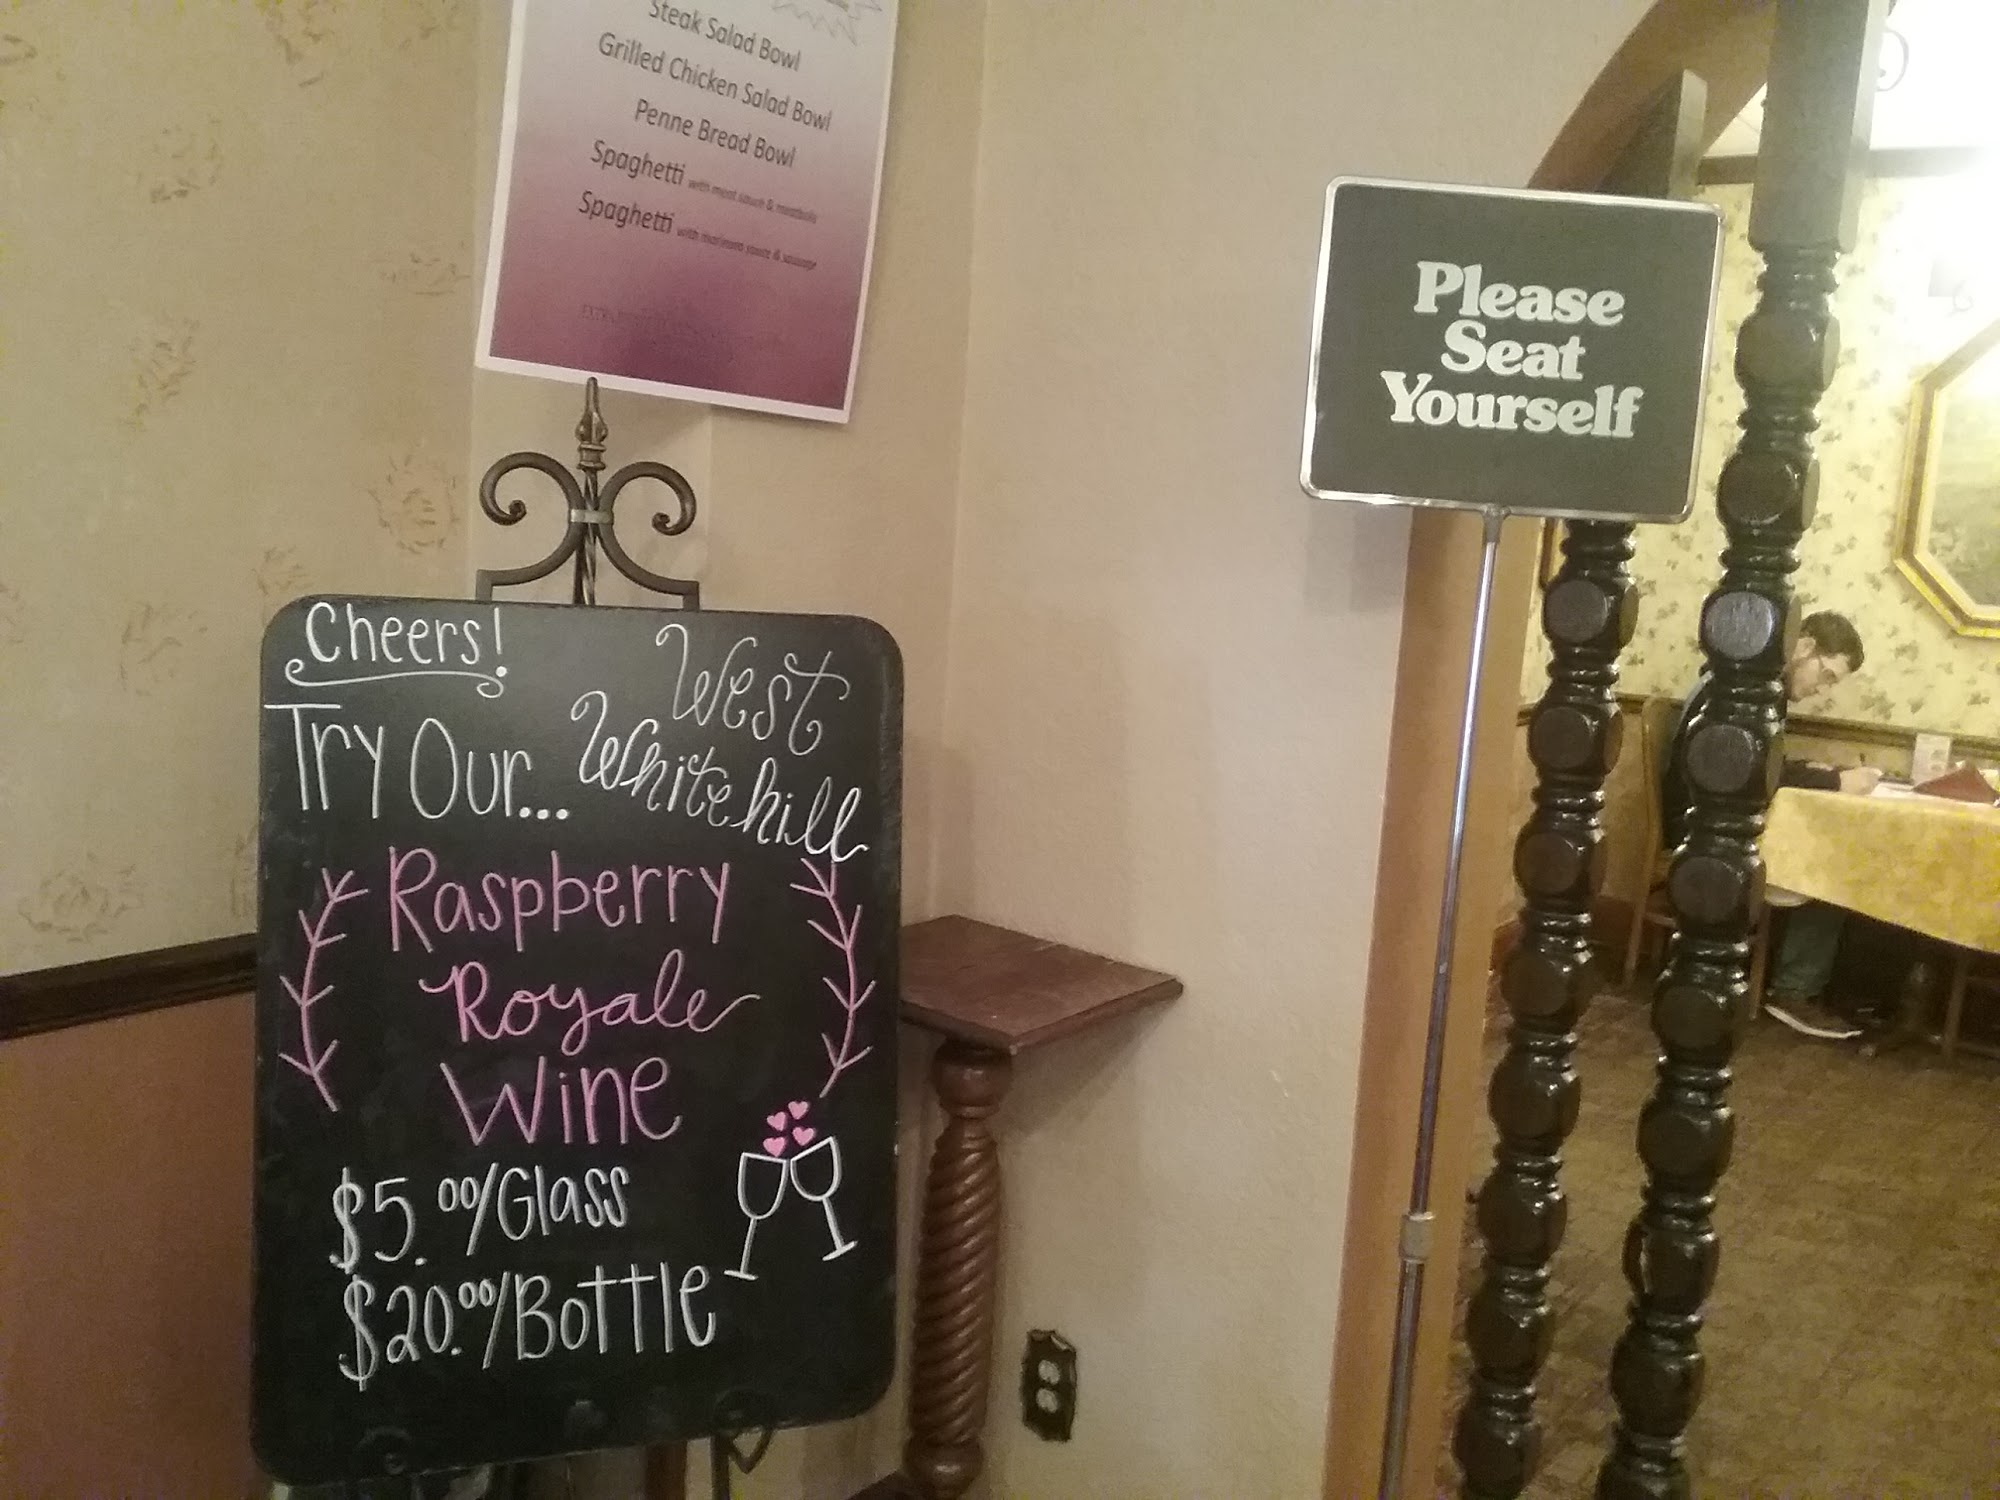 Steak Salad Bowl
Grilled Chicken Salad Bowl
Penne Bread Bowl
Spaghetti with meat sauce & meatballs
Spaghetti with marinara sauce & sausage
Please
Seat
Yourself
Cheers!
West
Whitehill
Try Our...
Raspberry
Royale
Wine
$5.00/Glass
$20.00/Bottle